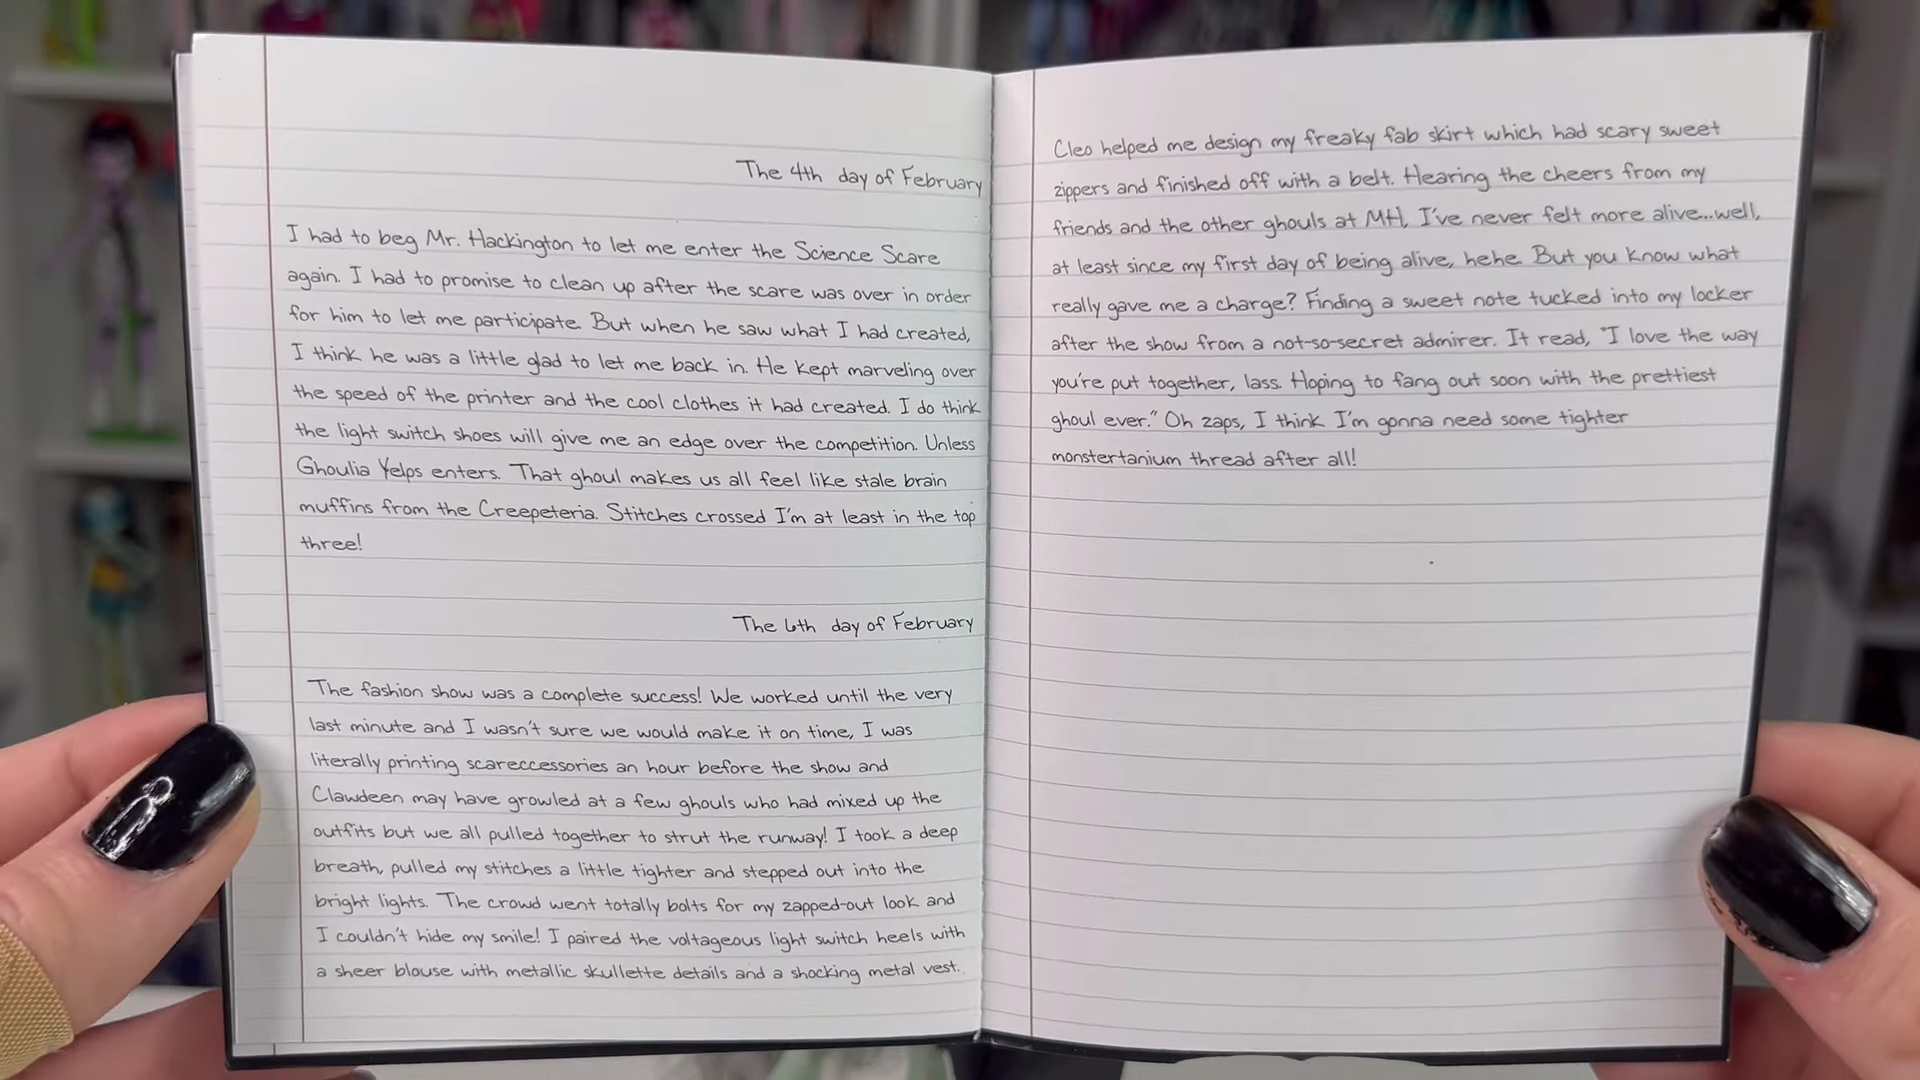 The 4th day of February
I had to beg Mr. Hackington to let me enter the Science Scare
again. I had to promise to clean up after the scare was over in order
for him to let me participate. But when he saw what I had created,
I think he was a little glad to let me back in. He kept marveling over
the speed of the printer and the cool clothes it had created. I do think
the light switch shoes will give me an edge over the competition. Unless
Ghoulia Yelps enters. That ghoul makes us all feel like stale brain
muffins from the Creepeteria. Stitches crossed I'm at least in the top
three!
The 6th day of February
The fashion show was a complete success! We worked until the very
last minute and I wasn't sure we would make it on time, I was
literally printing scareccessories an hour before the show and
Clawdeen may have growled at a few ghouls who had mixed up the
outfits but we all pulled together to strut the runway! I took a deep
breath, pulled my stitches a little tighter and stepped out into the
bright lights. The crowd went totally bolts for my zapped-out look and
I couldn't hide my smile! I paired the voltageous light switch heels with
a sheer blouse with metallic skullette details and a shocking metal vest.
Cleo helped me design my freaky fab skirt which had scary sweet
zippers and finished off with a belt. Hearing the cheers from my
friends and the other ghouls at MH, I've never felt more alive...well,
at least since my first day of being alive, hehe. But you know what
really gave me a charge? Finding a sweet note tucked into my locker
after the show from a not-so-secret admirer. It read, "I love the way
you're put together, lass. Hoping to fang out soon with the prettiest
ghoul ever." Oh zaps, I think I'm gonna need some tighter
monstertanium thread after all!